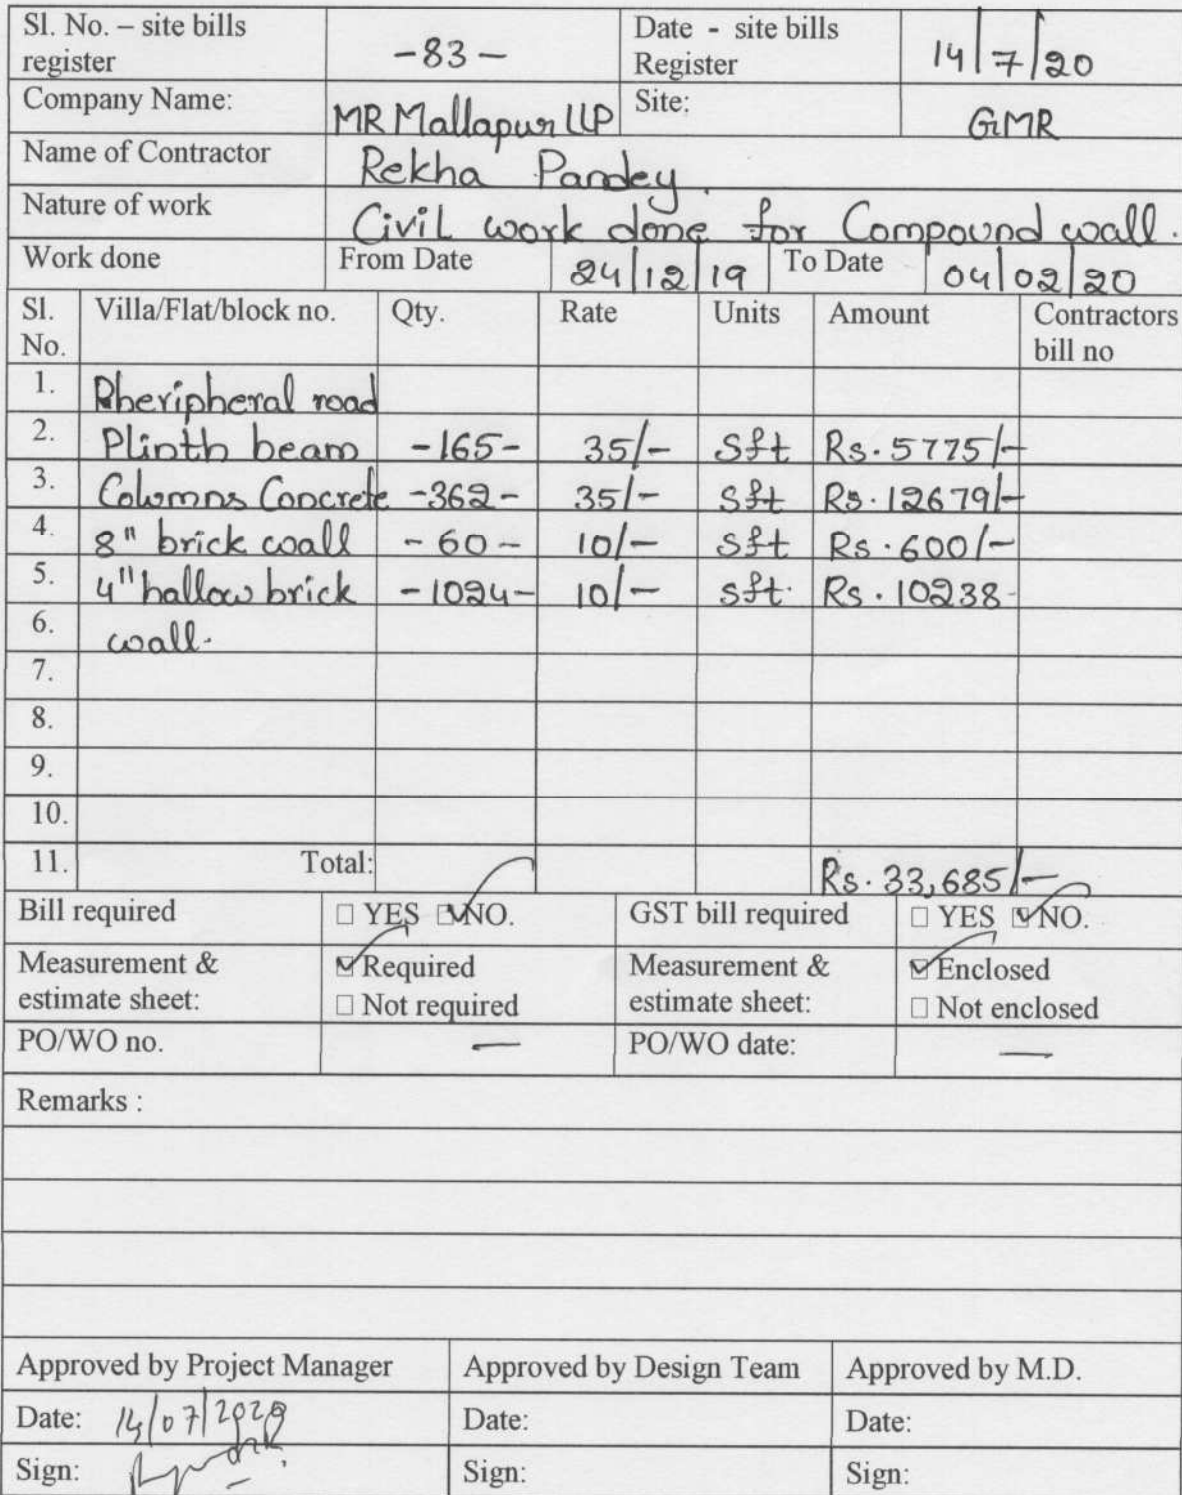 Sl. No. – site bills register -83- Date - site bills Register 14/7/20
Company Name: MR Mallapur LLP Site: GMR
Name of Contractor Rekha Pandey.
Nature of work Civil work done for Compound wall.
Work done From Date 24/12/19 To Date 04/02/20
Sl. No. Villa/Flat/block no. Qty. Rate Units Amount Contractors bill no
1. Pheripheral road
2. Plinth beam -165- 35/- Sft Rs. 5775/-
3. Columns Concrete -362- 35/- Sft Rs. 12679/-
4. 8" brick wall -60- 10/- Sft Rs. 600/-
5. 4" hallow brick -1024- 10/- sft. Rs. 10238-
6. wall.
7.
8.
9.
10.
11. Total: Rs. 33,685/-
Bill required □ YES ☑ NO. GST bill required □ YES ☑ NO.
Measurement & estimate sheet: ☑ Required □ Not required Measurement & estimate sheet: ☑ Enclosed □ Not enclosed
PO/WO no. — PO/WO date: —
Remarks :
Approved by Project Manager Approved by Design Team Approved by M.D.
Date: 14/07/2020 Date: Date:
Sign: Sign: Sign: